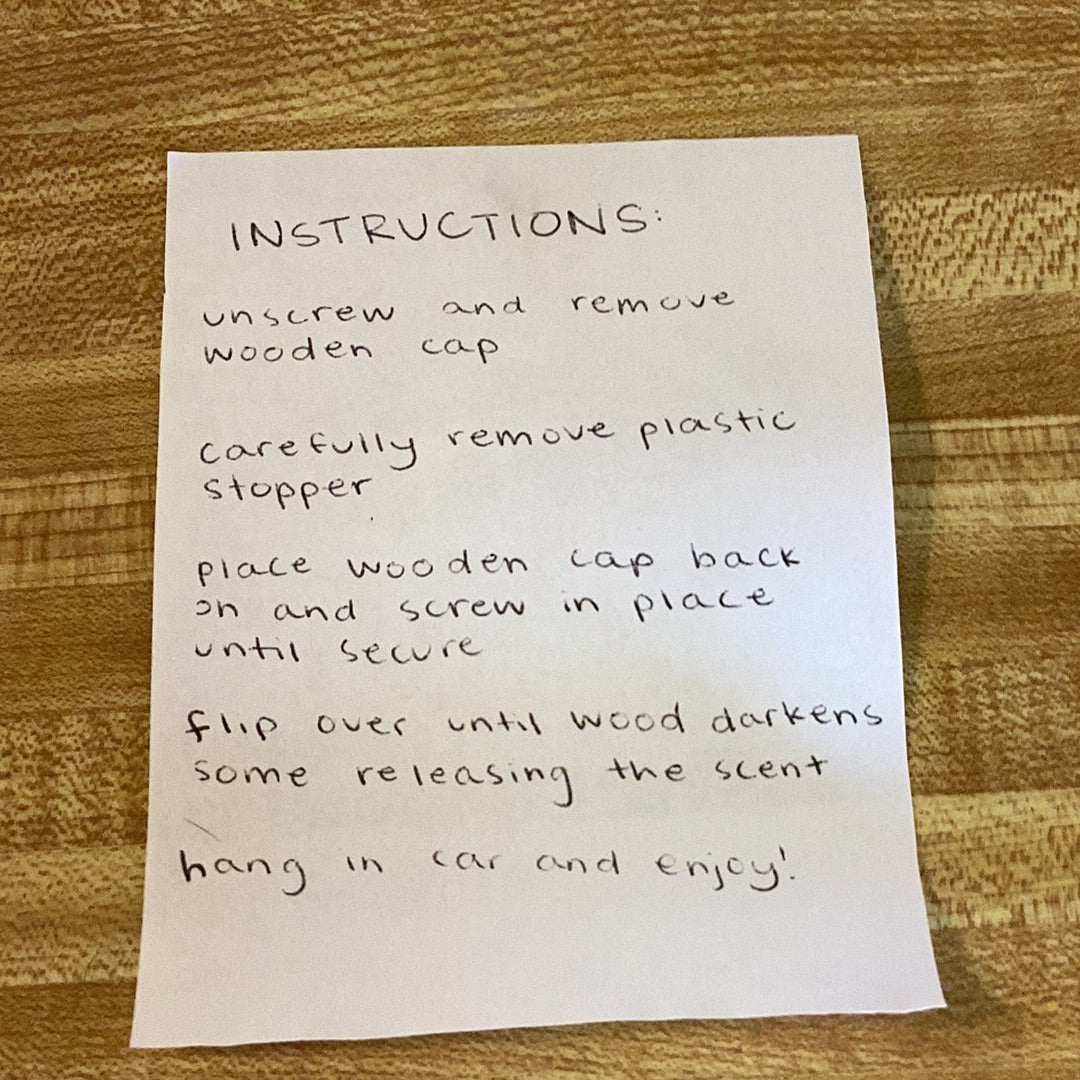 INSTRUCTIONS:
unscrew and remove
wooden cap
carefully remove plastic
stopper
place wooden cap back
on and screw in place
until secure
flip over until wood darkens
some releasing the scent
hang in car and enjoy!